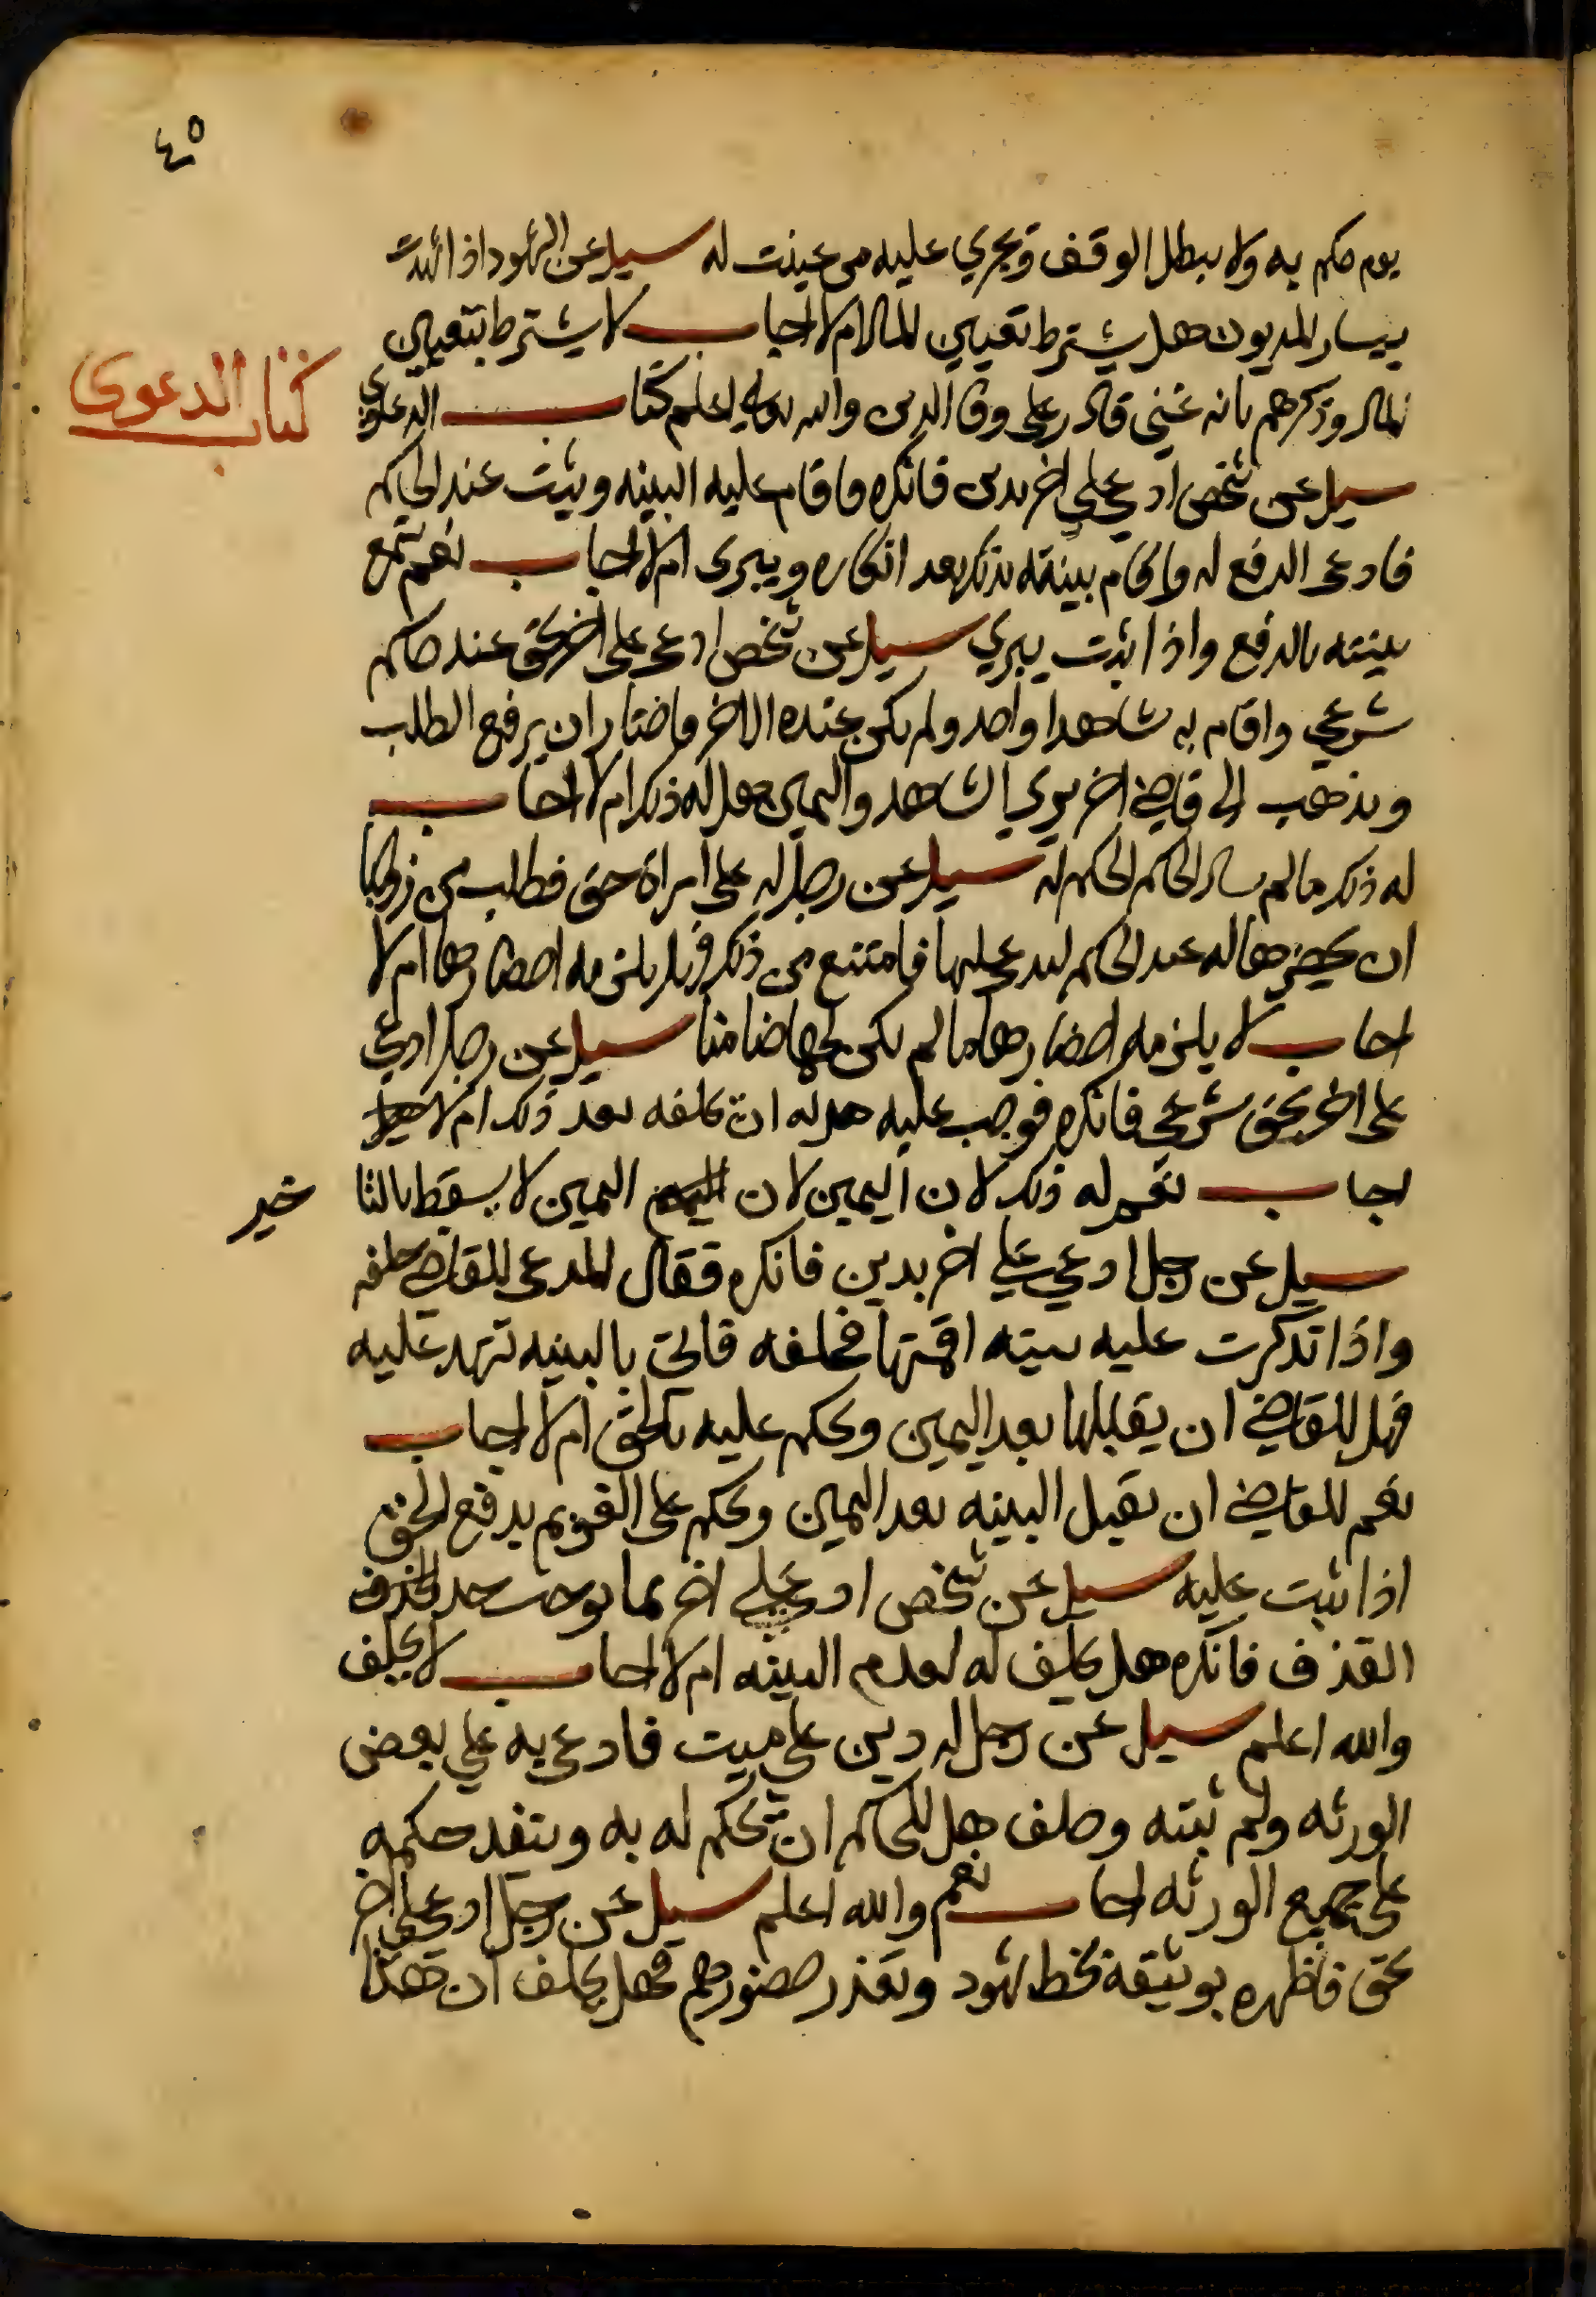 ٤٥
يوم حكم به ولا يبطل الوقف ويجري عليه من عينت له سيل عن الشهود اذا شهدت
بيسار المديون هل يشترط تعيين المال ام لا اجاب لا يشترط بتعيين
المال وذكرهم بانه غني قادر على وفا الدين والله تعالى اعلم كتاب الدعوى
كتاب الدعوى
سيل عن شخص ادعي علي اخر بدين فانكره واقام عليه البينه ويثبت عند الحاكم
فادعى الدفع له واقام بينته بذلك بعد انكاره ويبرى ام لا اجاب نعم تسمع
بينته بالدفع واذا ثبت يبري سيل عن شخص ادعى على اخر بحق عند حاكم
شرعي واقام به شاهدا واحد ولم يكن عنده الاخر واختار ان يرفع الطلب
ويذهب الى قاضي اخر يري الشاهد واليمين هل له ذلك ام لا اجاب
له ذلك ما لم يسال الحاكم الحكم له سيل عن رجل له على امراة حق فطلب من زوجها
ان يحضرها له عند الحاكم ليدعي عليها فامتنع من ذلك فهل يلزمه احضارها ام لا
اجاب لا يلزمه احضارها ما لم يكن لها ضامنا سيل عن رجل ادعي
على اخر بحق شرعي فانكره فوجب عليه هل له ان يحلفه بعد ذلك ام لا
اجاب نعم له ذلك لان اليمين لان اليمين لا يسقط بالتا
خير
سيل عن رجل ادعي علي اخر بدين فانكره فقال المدعى للقاضي حلفه
واذا تذكرت عليه بينه اقمتها فحلفه فاتى بالبينه تشهد عليه
فهل للقاضي ان يقبلها بعد اليمين ويحكم عليه بالحق ام لا اجاب
نعم للقاضي ان يقبل البينه بعد اليمين ويحكم على الغريم بدفع الحق
اذا ثبت عليه سيل عن شخص ادعي علي اخر بما يوجب حد القذف
القذف فانكره هل يحلف له لعدم البينه ام لا اجاب لا يحلف
والله اعلم سيل عن رجل له دين علي ميت فادعي به علي بعض
الورثه ولم ثبته وحلف هل للحاكم ان يحكم له به وينفد حكمه
على جميع الورثه اجاب نعم والله اعلم سيل عن رجل ادعى على اخر
بحق فاظهره بوثيقة بخط شهود وتعذر حضورهم فهل يحلف ان هذا